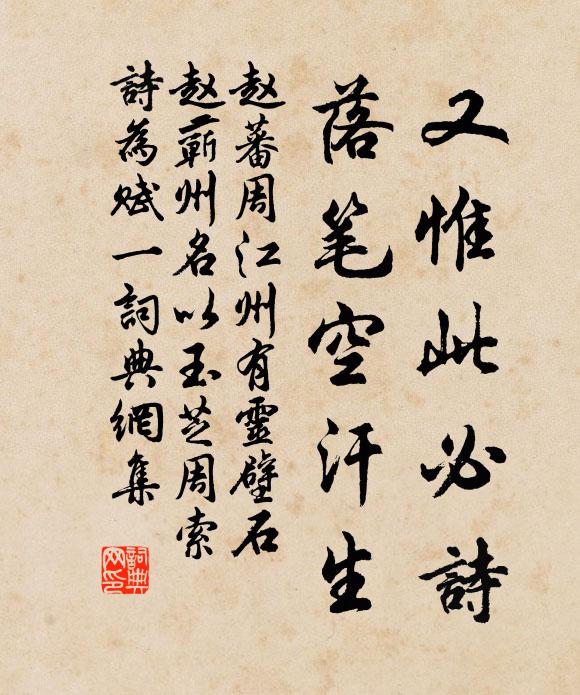 又惟此必詩
落笔空汗生
赵蕃周江州有靈壁石
赵蕲州名以玉芝周索
詩為赋一詞典網集
詞典网印